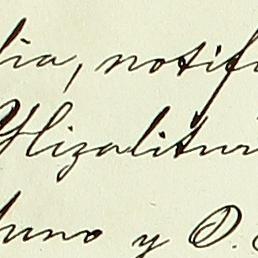 lia, notifi
Ylizalitur
huno y O.